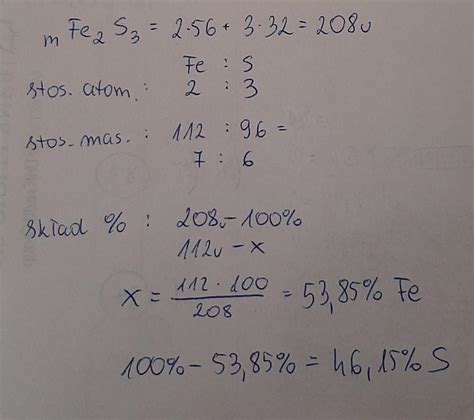 m Fe₂ S₃ = 2·56 + 3·32 = 208u
Fe : S
stos. atom. : 2 : 3
stos. mas. : 112 : 96 =
7 : 6
skład % : 208u - 100%
112u - x
x = 112 · 100 / 208 = 53,85% Fe
100% - 53,85% = 46,15% S